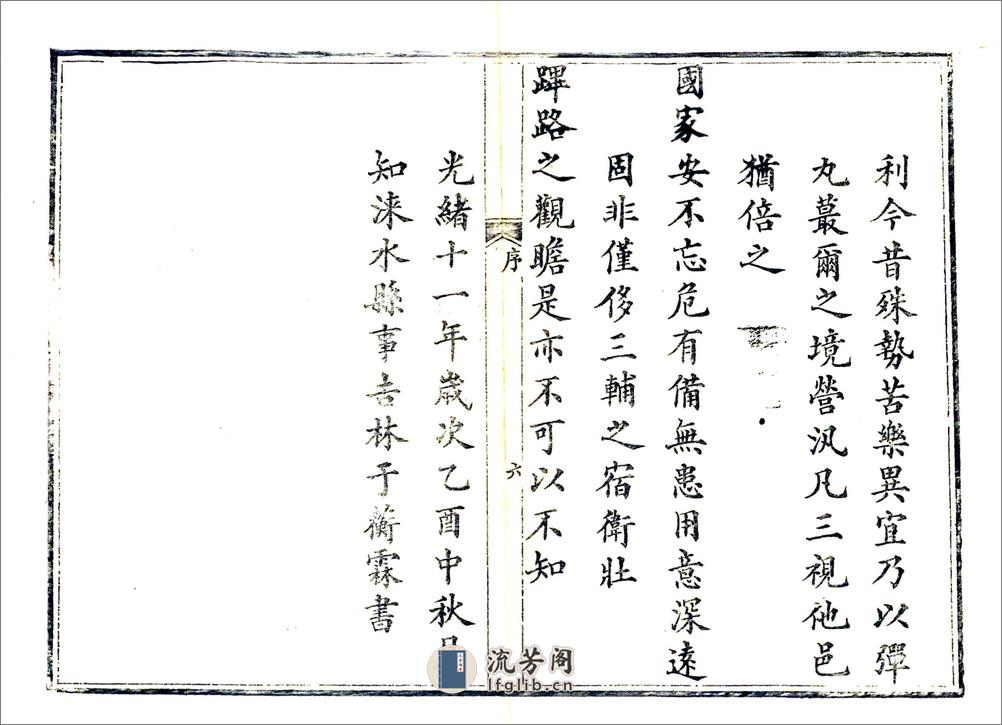 利今昔殊勢苦樂異宜乃以彈
丸蕞爾之境營汛凡三視他邑
猶倍之
國家安不忘危有備無患用意深遠
固非僅侈三輔之宿衛壯
蹕路之觀瞻是亦不可以不知
序
六
光緒十一年歲次乙酉中秋月
知淶水縣事吉林于蘅霖書
流芳阁
lfglib.cn